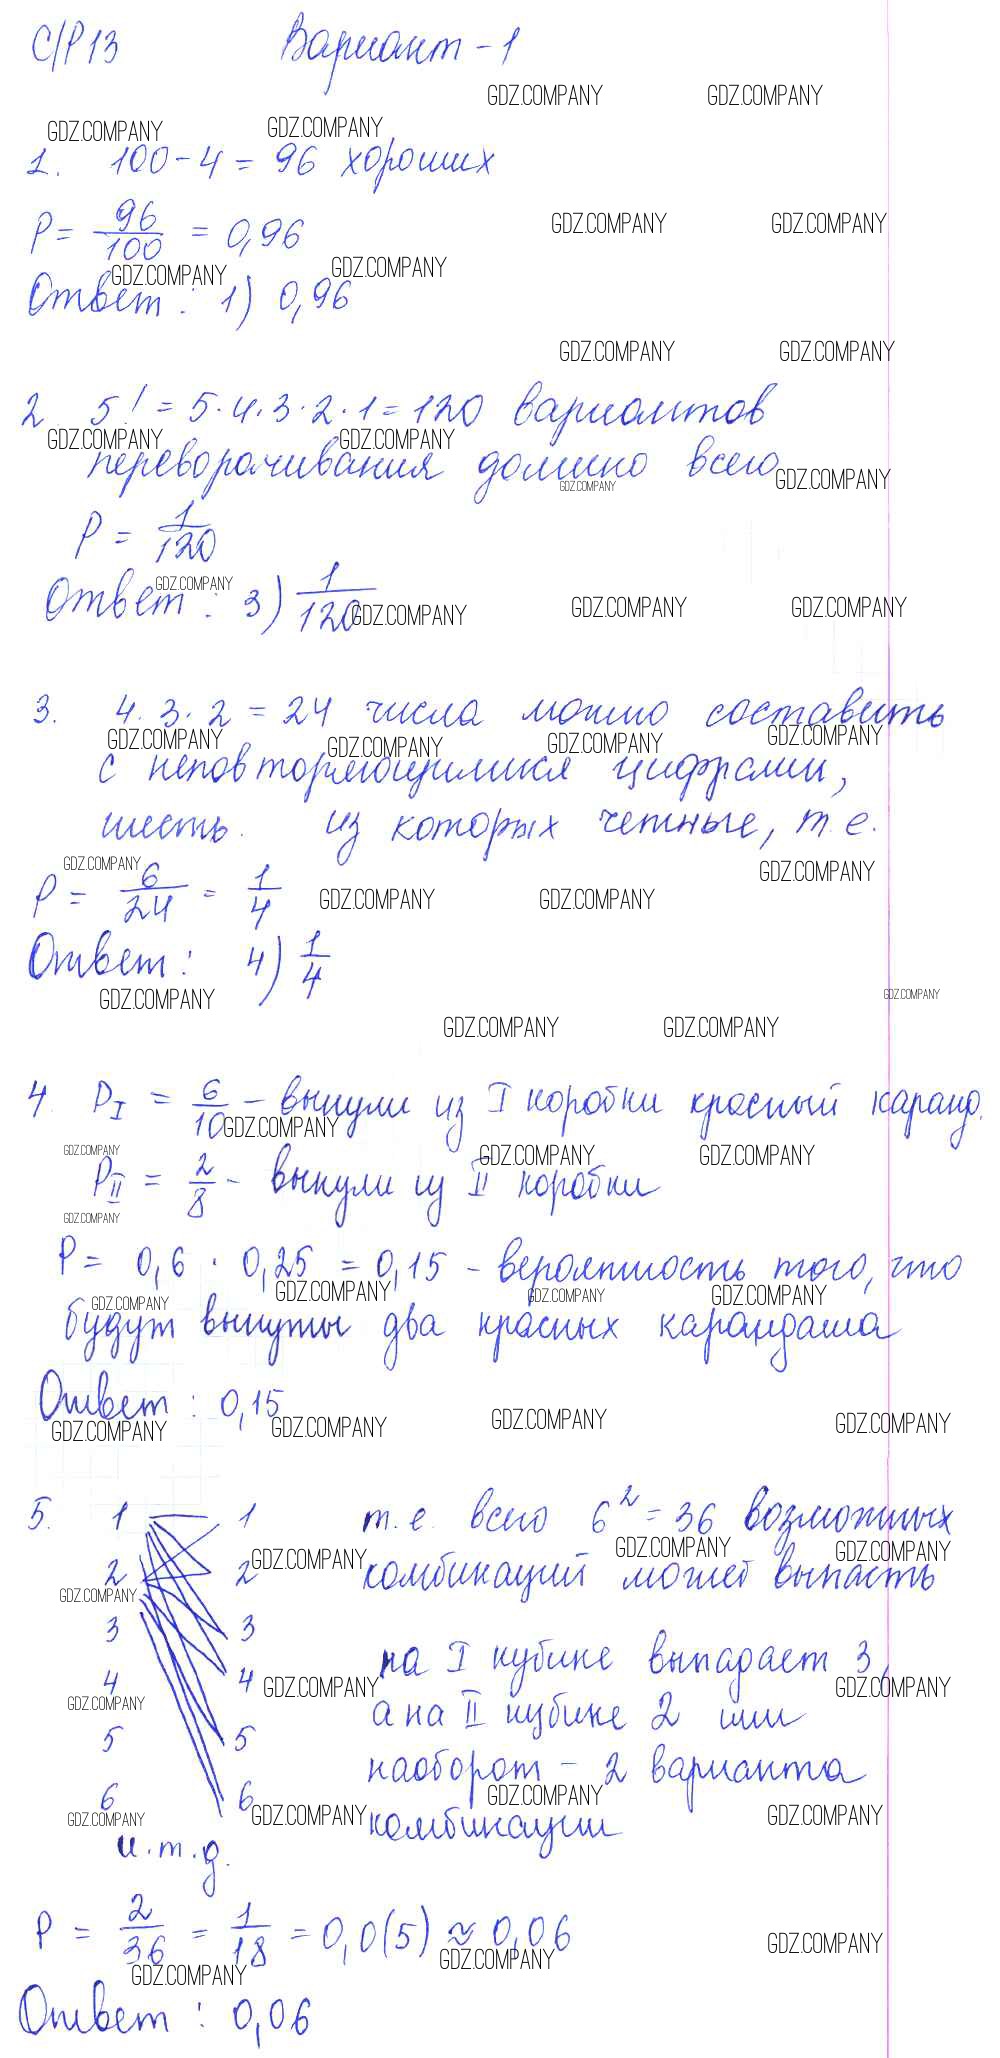 С/Р 13 Вариант - 1
GDZ.COMPANY GDZ.COMPANY
GDZ.COMPANY GDZ.COMPANY
1. 100 - 4 = 96 хороших
GDZ.COMPANY GDZ.COMPANY
P = 96/100 = 0,96
GDZ.COMPANY GDZ.COMPANY
Ответ: 1) 0,96
GDZ.COMPANY GDZ.COMPANY
2 5! = 5·4·3·2·1 = 120 вариантов
GDZ.COMPANY GDZ.COMPANY
переворачивания домино всего
GDZ.COMPANY GDZ.COMPANY
P = 1/120
GDZ.COMPANY
Ответ: 3) 1/120
GDZ.COMPANY GDZ.COMPANY GDZ.COMPANY
3. 4·3·2 = 24 числа можно составить
GDZ.COMPANY GDZ.COMPANY GDZ.COMPANY GDZ.COMPANY
с неповторяющимися цифрами,
шесть из которых четные, т.е.
GDZ.COMPANY GDZ.COMPANY
P = 6/24 = 1/4
GDZ.COMPANY GDZ.COMPANY
Ответ: 4) 1/4
GDZ.COMPANY GDZ.COMPANY
GDZ.COMPANY GDZ.COMPANY
4. P I = 6/10 - вынули из I коробки красный каранд.
GDZ.COMPANY
GDZ.COMPANY GDZ.COMPANY GDZ.COMPANY
P II = 2/8 - вынули из II коробки
GDZ.COMPANY
P = 0,6 · 0,25 = 0,15 - вероятность того, что
GDZ.COMPANY GDZ.COMPANY GDZ.COMPANY GDZ.COMPANY
будут вынуты два красных карандаша
Ответ: 0,15
GDZ.COMPANY GDZ.COMPANY GDZ.COMPANY GDZ.COMPANY
5. 1 1 т.е. всего 6² = 36 возможных
GDZ.COMPANY GDZ.COMPANY GDZ.COMPANY
2 2 комбинаций может выпасть
GDZ.COMPANY
3 3
на I кубике выпадает 3,
4 4
GDZ.COMPANY GDZ.COMPANY GDZ.COMPANY
а на II кубике 2 или
5 5
наоборот - 2 варианта
GDZ.COMPANY
6 6
GDZ.COMPANY GDZ.COMPANY GDZ.COMPANY
комбинации
и.т.д.
P = 2/36 = 1/18 = 0,0(5) ≈ 0,06
GDZ.COMPANY GDZ.COMPANY GDZ.COMPANY
Ответ: 0,06